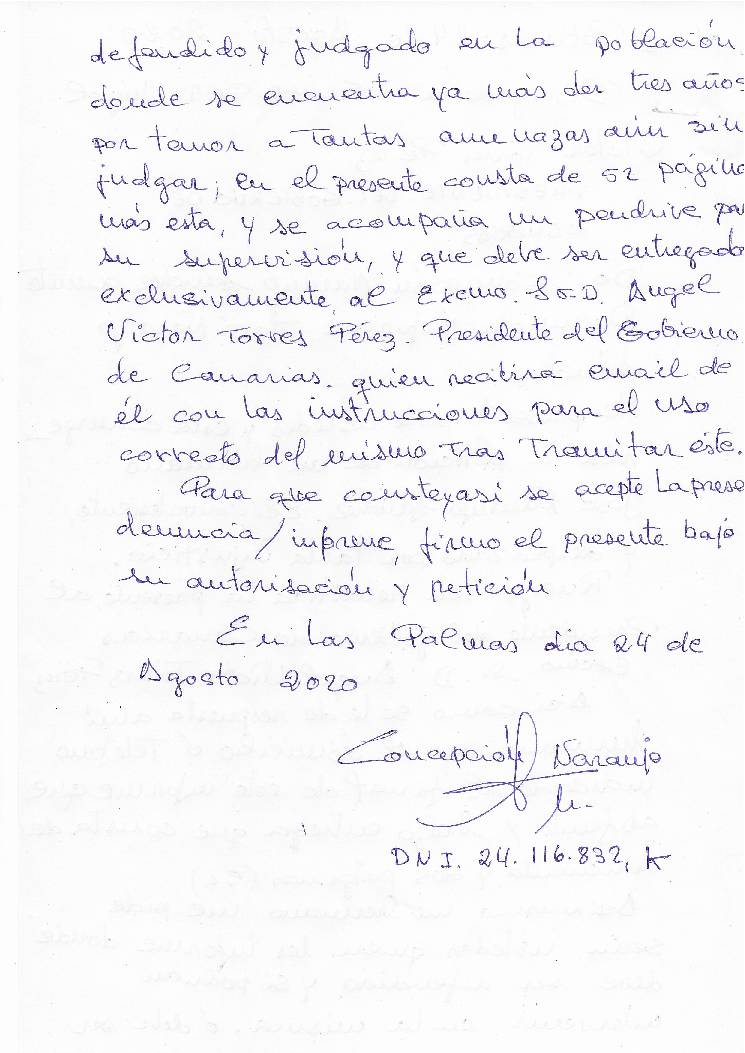 defendido y judgado en la población
donde se encuentra ya más der tres años
por temor a Tantas amenazas aún sin
judgar; en el presente consta de 52 página
más esta, y se acompaña un pendrive par
su supervisión, y que debe ser entregado
exclusivamente al Excmo. Sr. D. Angel
Víctor Torres Pérez. Presidente del Gobierno
de Canarias. quien recibirá email de
él con las instrucciones para el uso
correcto del mismo tras Tramitar éste.
Para que conste y asi se acepte la prese
denuncia/informe, firmo el presente bajo
su autorisación y petición
En Las Palmas dia 24 de
Agosto 2020
Concepción Naranjo
DNI. 24.116.832, K